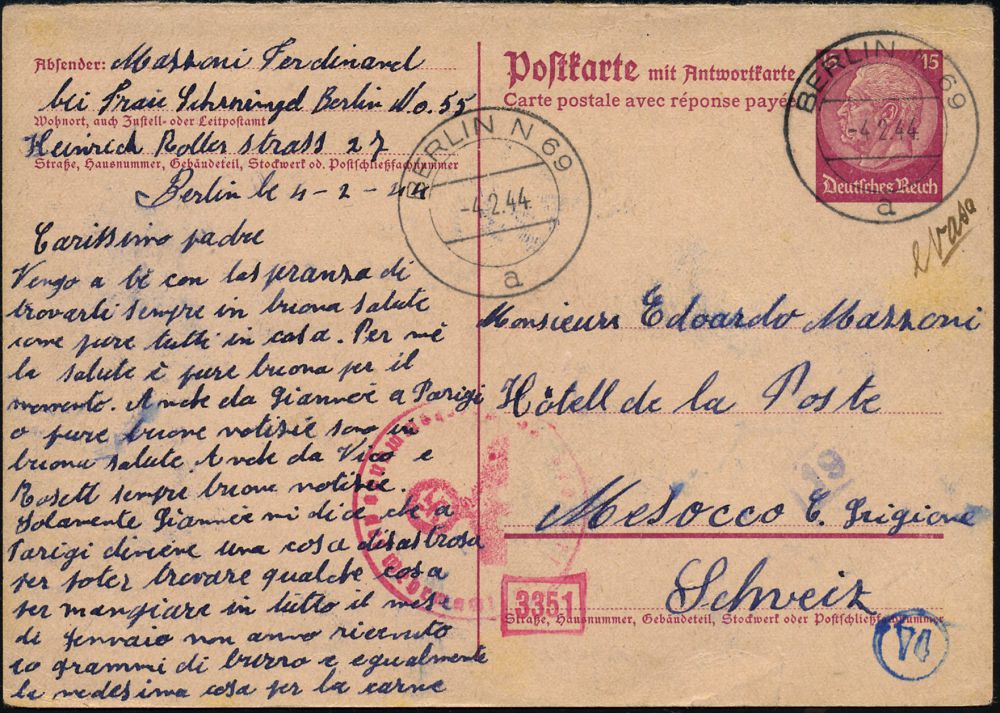 Absender: Mazzoni Ferdinand
bei Frau Schrningd Berlin No. 55
Wohnort, auch Zustell- oder Leitpostamt
Heinrich Roller strass 27
Straße, Hausnummer, Gebäudeteil, Stockwerk od. Postschließfachnummer
Berlin le 4-2-44
Carissimo padre
Vengo a té con la spranza di
trovarti sempre in buona salute
come pure tutti in casa. Per mé
la salute é pure buona per il
momento. Anche da Giannoé a Parigi
o pure buone notizie sono in
buona salute Anche da Vico e
Rosett sempre buone notizie.
Solamente Giannoé mi dice che a
Parigi diviene una cosa disastrosa
per poter trovare qualche cosa
per mangiare in tutto il mese
di gennaio non anno ricevuto
10 grammi di burro e egualmente
la medesima cosa per la carne
Postkarte mit Antwortkarte
Carte postale avec réponse payée
15
Deutsches Reich
BERLIN N 69
-4.2.44
a
BERLIN N 69
-4.2.44
a
Monsieur Edoardo Mazzoni
Hôtell de la Poste
Mesocco C. Grigione
Schweiz
Straße, Hausnummer, Gebäudeteil, Stockwerk oder Postschließfachnummer
3351
19